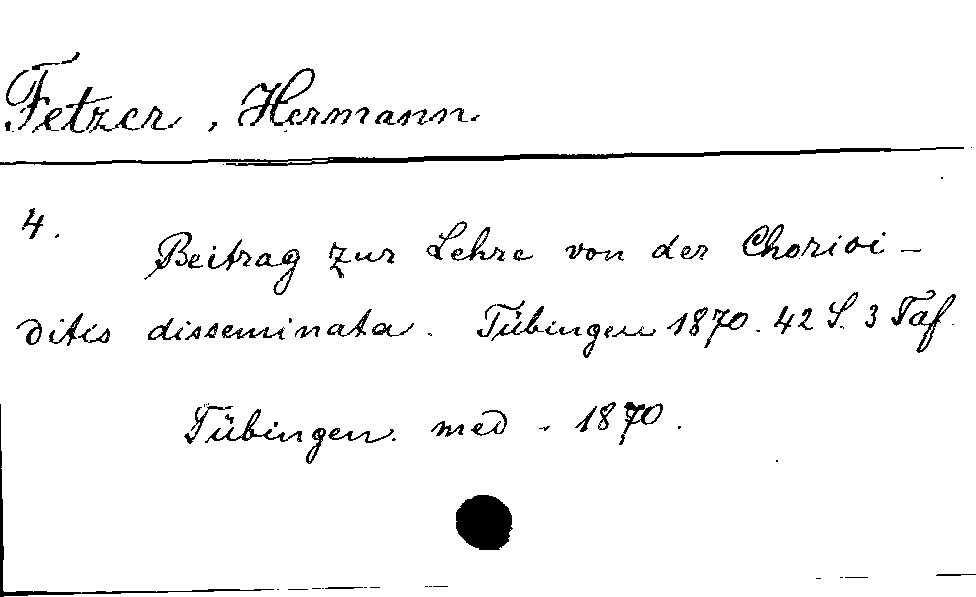 Fetzer, Hermann.
4.
Beitrag zur Lehre von der Chorioi-
ditis disseminata. Tübingen 1870. 42 S. 3 Taf.
Tübingen. med. 1870.